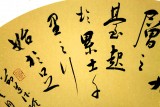 層之
臺起
於累土千
里之行
始於足